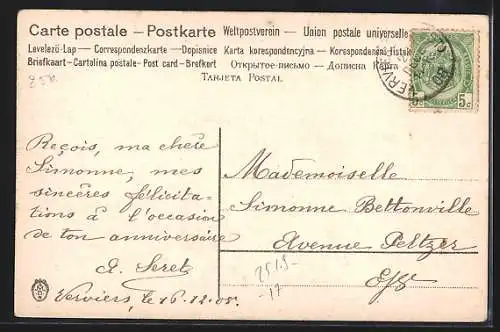 Carte postale – Postkarte Weltpostverein – Union postale universelle
Levelező-Lap – Correspondenzkarte – Dopisnice Karta korespondencyjna – Korespondenční lístek
Briefkaart – Cartolina postale – Post card – Brefkort Открытое письмо – Дописна Карта
Tarjeta Postal
5c
VERVIERS
Reçois, ma chère
Simonne, mes
sincères félicita-
tions à l'occasion
de ton anniversaire
Verviers, le 16.12.08.
Mademoiselle
Simonne Bettonville
Avenue Peltzer